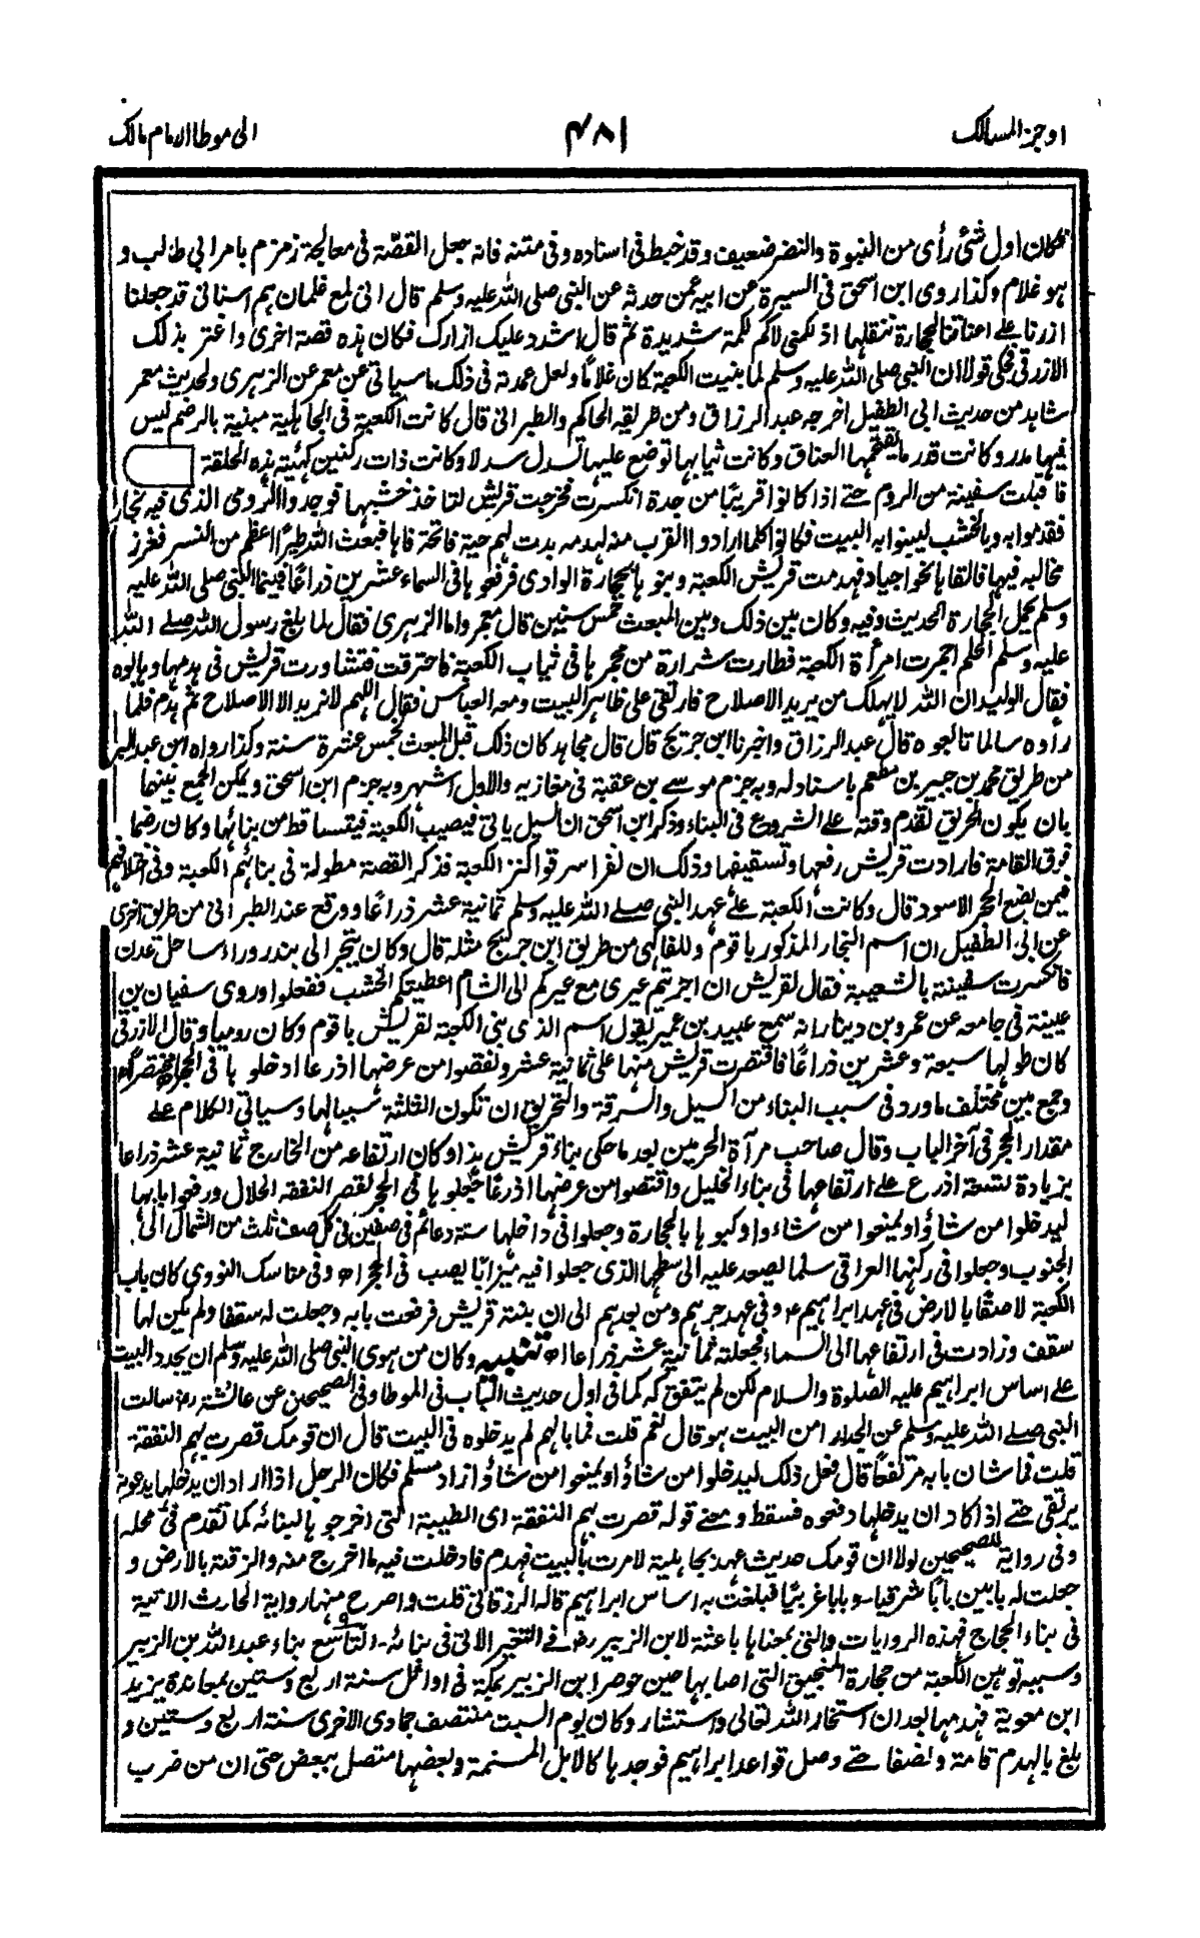 اوجز المسالک ۴۸۱ الی موطا الامام مالک
فکان اول شئی رأی من النبوة والنضر ضعیف وقد خبط فی اسناده وفی متنه فانه جعل القصّة فی معالجة زمزم بامر ابی طالب و
ہو غلام وکذا روی ابن اسحق فی السیرة عن ابیه عمن حدثه عن النبی صلی اللہ علیه وسلم قال انی لمع غلمان ہم اسنانی قد جعلنا
ازرنا علے اعناقنا لحجارة ننقلها اذ لکمنی لاکم لکمة شدیدة ثم قال اشدد علیک ازارک فکان ہذه قصة اخری واغتر بذلک
الازرقی فحکی قولا ان النبی صلی اللہ علیه وسلم لما بنیت الکعبة کان غلاماً ولعل عمدته فی ذلک ماسیاتی عن معمر عن الزہری ولحدیث معمر
شاہد من حدیث ابی الطفیل اخرجه عبدالرزاق ومن طریقه الحاکم والطبرانی قال کانت الکعبة فی الجاہلیة مبنیة بالرضم لیس
فیہا مدر وکانت قدر مایقتحمها العناق وکانت ثیابها توضع علیها تسدل سدلا وکانت ذات رکنین کہیئة ہذه الحلقة
فاقبلت سفینة من الروم حتے اذا کانوا قریبًا من جدة انکسرت فخرجت قریش لتاخذ خشبها فوجدوا الرومی الذی فیه نجارا
فقدموا به وبالخشب لیبنوا به البیت فکانوا کلما ارادوا القرب منه لہدمه بدت لہم حیة فاتحة فاہا فبعث اللہ طیرًا اعظم من النسر فغرز
مخالبه فیہا فالقاہا نحو اجیاد فہدمت قریش الکعبة وبنوہا بحجارة الوادی فرفعوہا فی السماء عشرین ذراعًا فبینما النبی صلی اللہ علیه
وسلم یحمل الحجارة الحدیث وفیه وکان بین ذلک وبین المبعث خمس سنین قال معمر واما الزہری فقال لما بلغ رسول اللہ صلے اللہ
علیه وسلم الحلم اجمرت امرأة الکعبة فطارت شرارة من مجمرہا فی ثیاب الکعبة فاحترقت فتشاورت قریش فی ہدمها وہابوه
فقال الولید ان اللہ لایہلک من یرید الاصلاح فارتقی علی ظاہر البیت ومعه العباس فقال اللہم لانرید الا الاصلاح ثم ہدم فلما
رأوه سالما تابعوه قال عبدالرزاق واخبرنا ابن جریج قال قال مجاہد کان ذلک قبل المبعث بخمس عشرة سنة وکذا رواه ابن عبدالبر
من طریق محمد بن جبیر بن مطعم باسناد له وبه جزم موسے بن عقبة فی مغازیه والاول اشہر وبه جزم ابن اسحق ویمکن الجمع بینهما
بان یکون الحریق تقدم وقته علے الشروع فی البناء وذکر ابن اسحق ان السیل یاتی فیصیب الکعبة فیتساقط من بنائها وکان رضما
فوق القامة فارادت قریش رفعها وتسقیفها وذلک ان نفرا سرقوا کنز الکعبة فذکر القصة مطولة فی بنائہم الکعبة وفی اختلافہم
فیمن یضع الحجر الاسود قال وکانت الکعبة علے عہد النبی صلے اللہ علیه وسلم ثمانیة عشر ذراعًا ووقع عند الطبرانی من طریق اخری
عن ابی الطفیل ان اسم النجار المذکور باقوم وللفاکہی من طریق ابن جریج مثله قال وکان یتجر الی بندر وراء ساحل عدن
فانکسرت سفینته بالشعیبة فقال لقریش ان اجریتم عیری مع عیرکم الی الشام اعطیتکم الخشب ففعلوا وروی سفیان بن
عیینة فی جامعه عن عمرو بن دینار انه سمع عبید بن عمیر یقول اسم الذی بنی الکعبة لقریش باقوم وکان رومیا وقال الازرقی
کان طولها سبعة وعشرین ذراعًا فاقتصرت قریش منها علی ثمانیة عشر ونقصوا من عرضها اذرعا ادخلوہا فی الحجر اھ مختصرًا
وجمع بین مختلف ماورد فی سبب البناء من السیل والسرقة والتحریق ان تکون الثلثة سببا لها وسیاتی الکلام علے
مقدار الحجر فی آخر الباب وقال صاحب مرآة الحرمین بعد ما حکی بناء قریش ہذا وکان ارتفاعه من الخارج ثمانیة عشر ذراعا
بزیادة تسعة اذرع علے ارتفاعها فی بناء الخلیل واقتصوا من عرضها اذرعًا جعلوہا فی الحجر لقصر النفقة الحلال ورفعوا بابها
لیدخلوا من شاؤا ویمنعوا من شاءوا وکبسوہا بالحجارة وجعلوا فی داخلها ستة دعائم فی صفین فی کل صف ثلث من الشمال الی
الجنوب وجعلوا فی رکنها العراقی سلما یصعد علیه الی سطحها الذی جعلوا فیه میزابًا یصب فی الحجر اھ وفی مناسک النووی کان باب
الکعبة لاصقا بالارض فی عہد ابراہیم ؑ وفی عہد جرہم ومن بعدہم الی ان بنته قریش فرفعت بابه وجعلت له سقفا ولم یکن لها
سقف وزادت فی ارتفاعها الی السماء فجعلته ثمانیة عشر ذراعا اھ تنبیه وکان من ہوی النبی صلی اللہ علیه وسلم ان یجدد البیت
علے اساس ابراہیم علیه الصلوة والسلام لکن لم یتفق له کما فی اول حدیث الباب فی الموطا وفی الصحیحین عن عائشة رض سالت
النبی صلے اللہ علیه وسلم عن الجدار امن البیت ہو قال نعم قلت فما بالہم لم یدخلوه فی البیت قال ان قومک قصرت بہم النفقة
قلت فماشان بابه مرتفعًا قال فعل ذلک لیدخلوا من شاؤا ویمنعوا من شاؤا زاد مسلم فکان الرجل اذا اراد ان یدخلها یدعونه
یرتقی حتے اذا کاد ان یدخلها دفعوه فسقط ومعنے قوله قصرت بہم النفقة ای الطیبة التی اخرجوہا لبنائه کما تقدم فی محله
وفی روایة للصحیحین لولا ان قومک حدیث عہد بجاہلیة لامرت بالبیت فہدم فادخلت فیه ما اخرج منه والزقته بالارض و
جعلت له بابین بابًا شرقیا وبابا غربیًا فبلغت به اساس ابراہیم قاله الزرقانی قلت واصرح منها روایة الحارث الاتیة
فی بناء الحجاج فہذه الروایات والتی بمعناہا باعثة لابن الزبیر رض فی التغیر الاتی فی بنائه ۔ التاسع بناء عبداللہ بن الزبیر
وسببه توہین الکعبة من حجارة المنجنیق التی اصابها حین حوصر ابن الزبیر بمکة فی اوائل سنة اربع وستین بمعاندة یزید
ابن معویة فہدمها بعد ان استخار اللہ تعالی واستشار وکان یوم السبت منتصف جمادی الاخری سنة اربع وستین و
بلغ بالہدم قامة ونصفا حتے وصل قواعد ابراہیم فوجدہا کالابل المسنمة وبعضها متصل ببعض حتی ان من ضرب